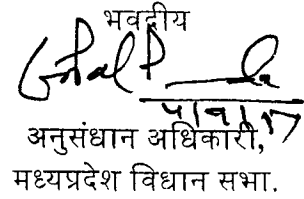 भवदीय
अनुसंधान अधिकारी,
मध्यप्रदेश विधान सभा.